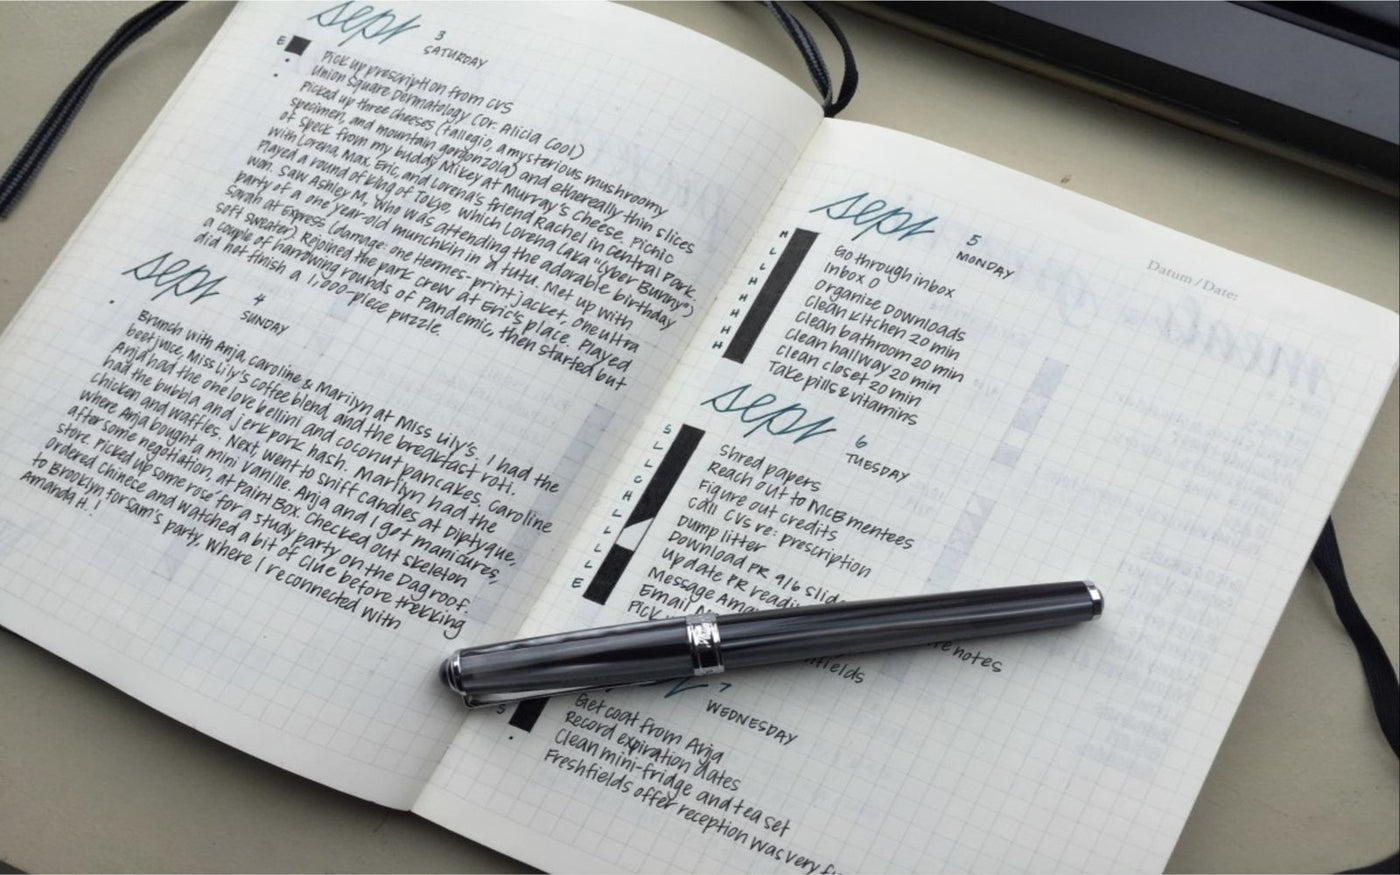 sept 3
SATURDAY
E
Pick up prescription from CVS
Union Square Dermatology (Dr. Alicia Cool)
Picked up three cheeses (tallegio, a mysterious mushroomy
specimen, and mountain gorgonzola) and ethereally thin slices
of speck from my buddy Mikey at Murray's Cheese. Picnic
with Lorena, Max, Eric, and Lorena's friend Rachel in Central Park.
Played a round of King of Tokyo, which Lorena (aka "Cyber Bunny")
won. Saw Ashley M., who was attending the adorable birthday
party of a one year-old munchkin in a tutu. Met up with
Sarah at Express (damage: one Hermes-print jacket, one ultra
soft sweater) Rejoined the park crew at Eric's place. Played
a couple of harrowing rounds of Pandemic, then started but
did not finish a 1,000-piece puzzle.
sept 4
SUNDAY
Brunch with Anja, Caroline & Marilyn at Miss Lily's. I had the
beet juice, Miss Lily's coffee blend, and the breakfast roti.
Anja had the one love bellini and coconut pancakes, Caroline
had the bubbla and jerk pork hash. Marilyn had the
Chicken and waffles. Next, went to sniff candles at Diptyque,
where Anja bought a mini Vanille. Anja and I got manicures,
after some negotiation, at Paint Box. Checked out skeleton
store. Picked up some rosé for a study party on the Dag roof.
Ordered Chinese and watched a bit of Clue before trekking
to Brooklyn for Sam's party, where I reconnected with
Amanda H.!
Datum / Date:
sept 5
MONDAY
M
L
L
H
H
H
H
H
Go through inbox
Inbox 0
Organize Downloads
Clean kitchen 20 min
Clean bathroom 20 min
Clean hallway 20 min
Clean closet 20 min
Take pills & vitamins
sept 6
TUESDAY
S
L
L
C
H
L
L
L
L
E
Shred papers
Reach out to McB mentees
Figure out credits
Call CVS re: prescription
Dump litter
Download PR 9/6 slides
Update PR readi
Message Ama
Email
Pick
re notes
hfields
7
WEDNESDAY
S
Get coat from Anja
Record expiration dates
Clean mini-fridge and tea set
Freshfields offer reception was very